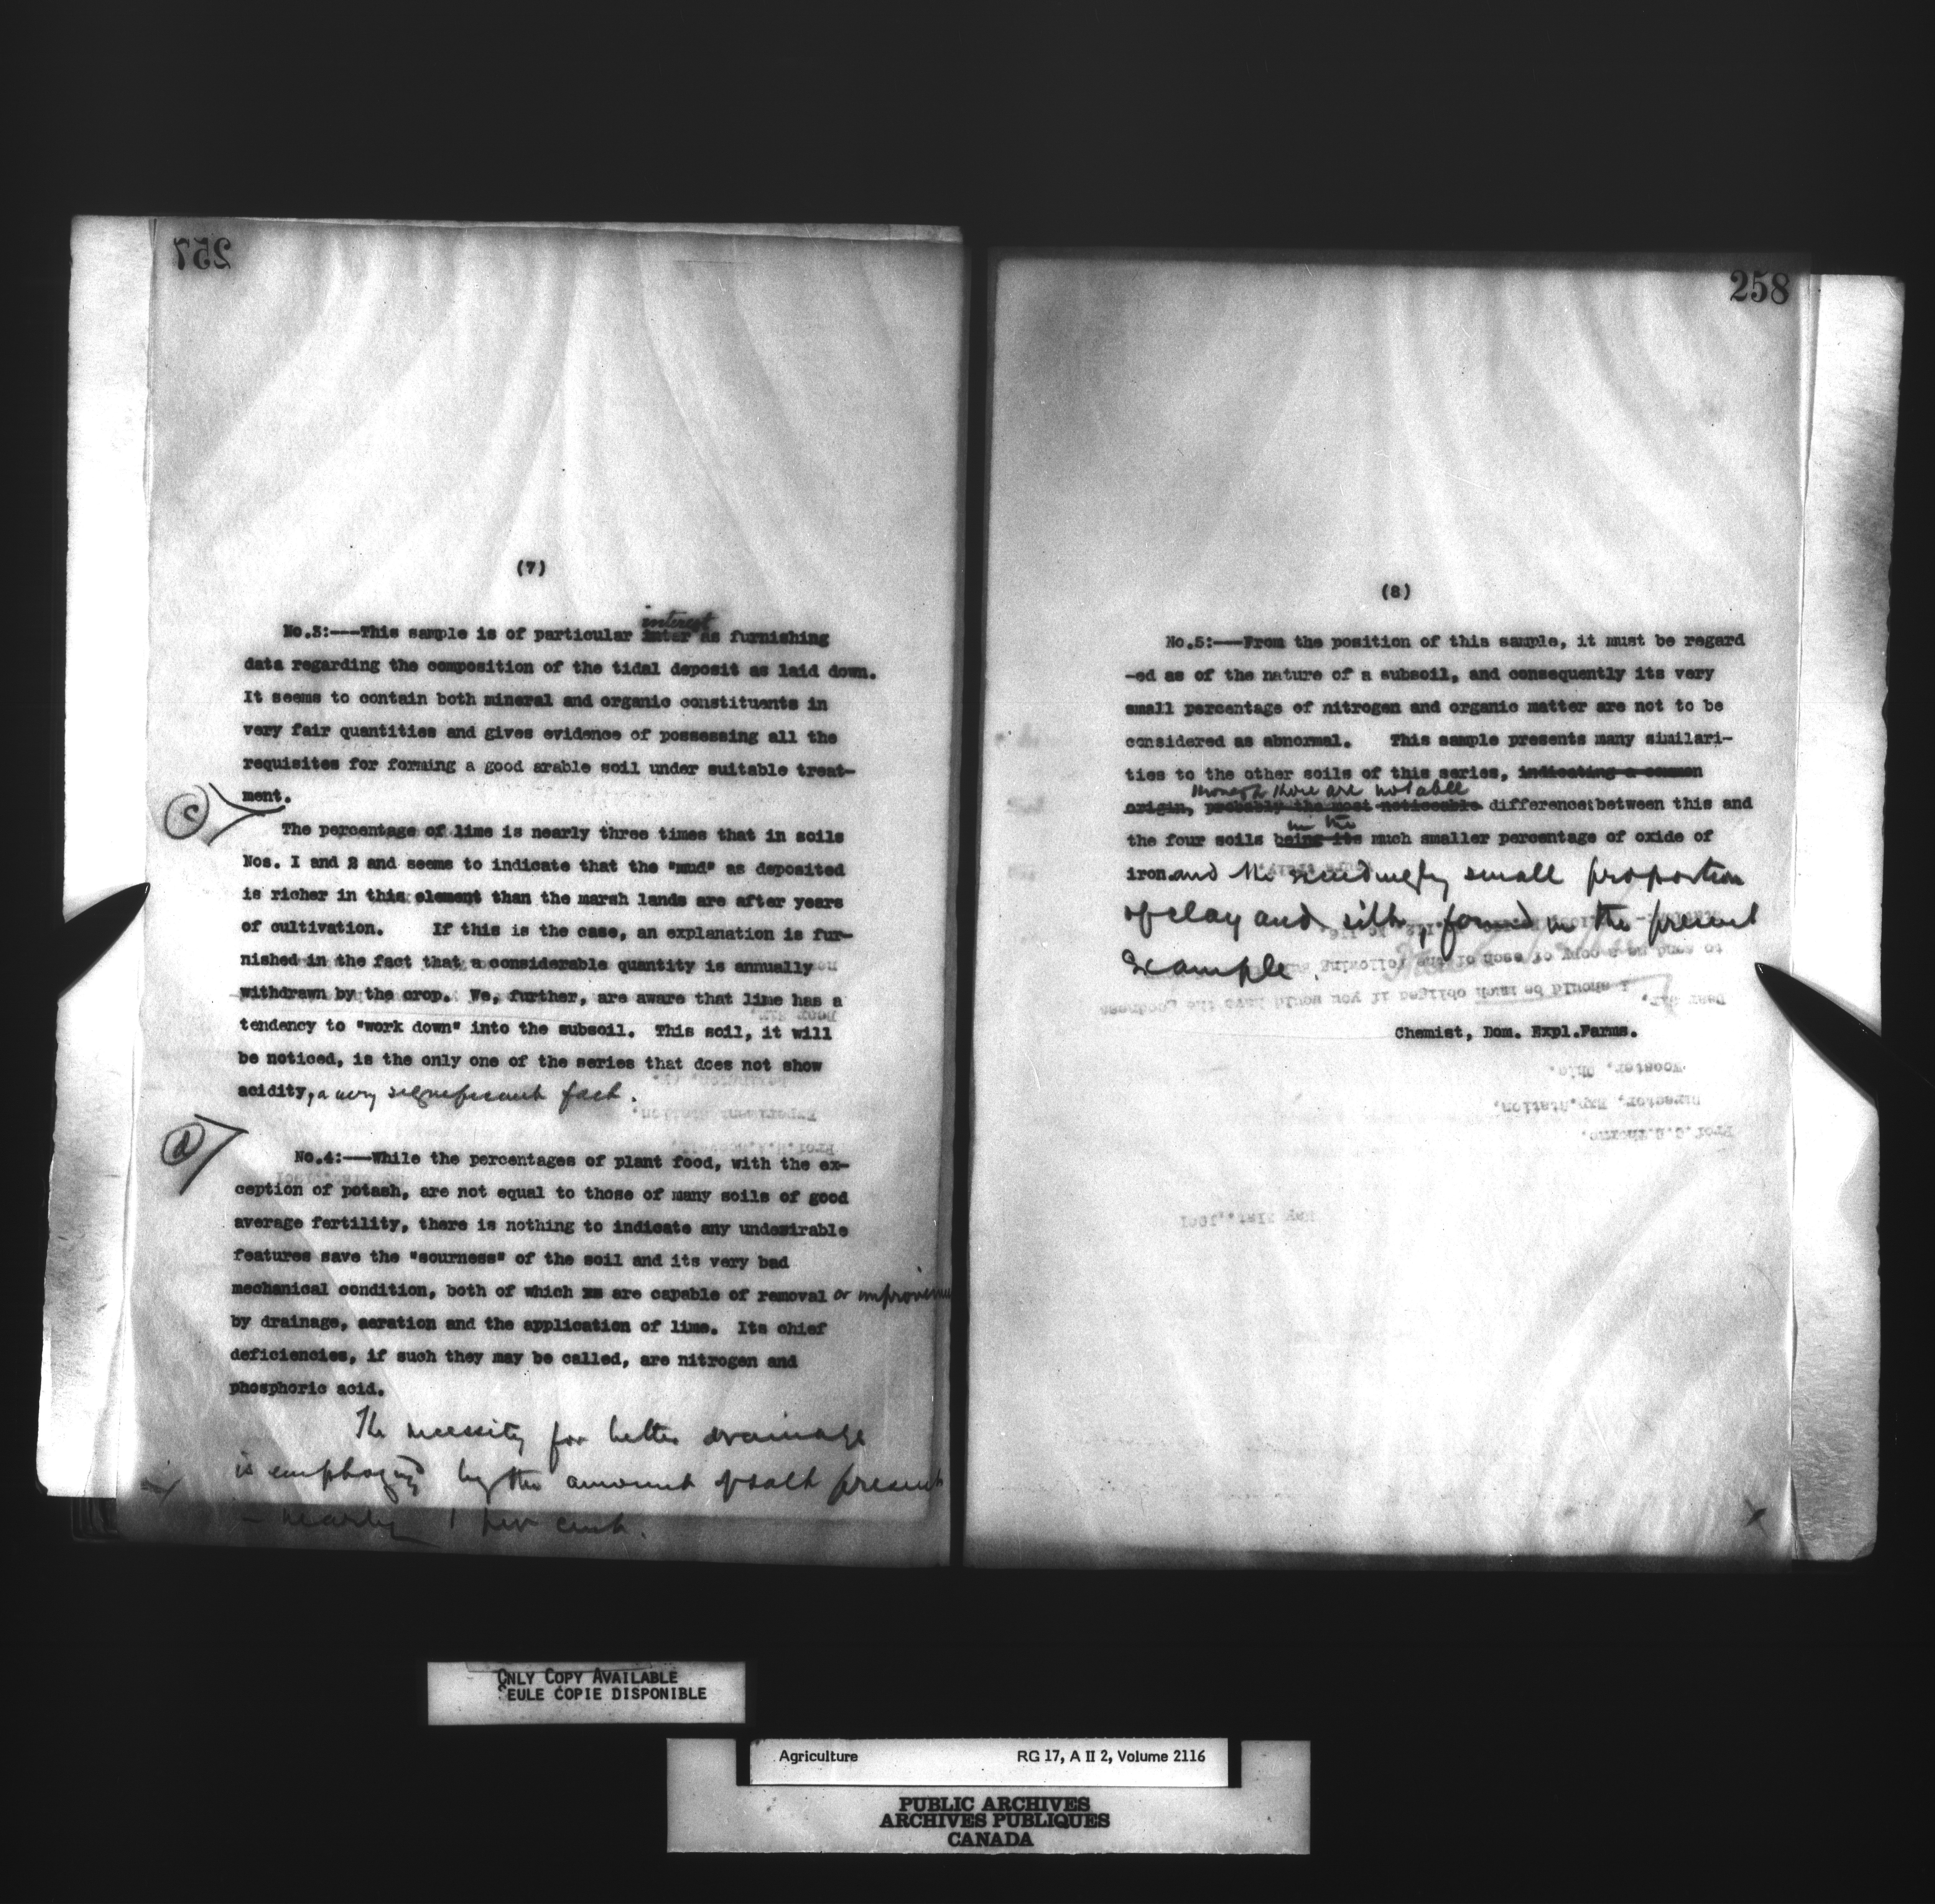 257
(7)
interest
No.3:---This sample is of particular inter as furnishing
data regarding the composition of the tidal deposit as laid down.
It seems to contain both mineral and organic constituents in
very fair quantities and gives evidence of possessing all the
requisites for forming a good arable soil under suitable treat-
ment.
C
The percentage of lime is nearly three times that in soils
Nos. I and 2 and seems to indicate that the "mud" as deposited
is richer in this element than the marsh lands are after years
of cultivation. If this is the case, an explanation is fur-
nished in the fact that a considerable quantity is annually
withdrawn by the crop. We, further, are aware that lime has a
tendency to "work down" into the subsoil. This soil, it will
be noticed, is the only one of the series that does not show
acidity, a very significant fact.
d
No.4:---While the percentages of plant food, with the ex-
ception of potash, are not equal to those of many soils of good
average fertility, there is nothing to indicate any undesirable
features save the "sourness" of the soil and its very bad
mechanical condition, both of which are capable of removal or
by drainage, aeration and the application of lime. Its chief
deficiencies, if such they may be called, are nitrogen and
phosphoric acid.
The necessity for better drainage
is emphazied by the amount of salt present
- nearly 1 per cent.
258
(8)
No.5:---From the position of this sample, it must be regard
-ed as of the nature of a subsoil, and consequently its very
small percentage of nitrogen and organic matter are not to be
considered as abnormal. This sample presents many similari-
ties to the other soils of this series, indicating a common
though there are notable
origin, probably the most noticeable differences between this and
in the
the four soils being its much smaller percentage of oxide of
iron and the exceedingly small proportion
of clay and silt, found in the present
example.
Chemist, Dom. Expl.Farms.
to send me a copy of each of the following
Dear Sir,
I should be much obliged if you would have the goodness
Wooster, Ohio.
Director, Exp.Station,
Prof.C.E.Thorne,
May 21st.,1901
ONLY COPY AVAILABLE
SEULE COPIE DISPONIBLE
Agriculture RG 17, A II 2, Volume 2116
PUBLIC ARCHIVES
ARCHIVES PUBLIQUES
CANADA